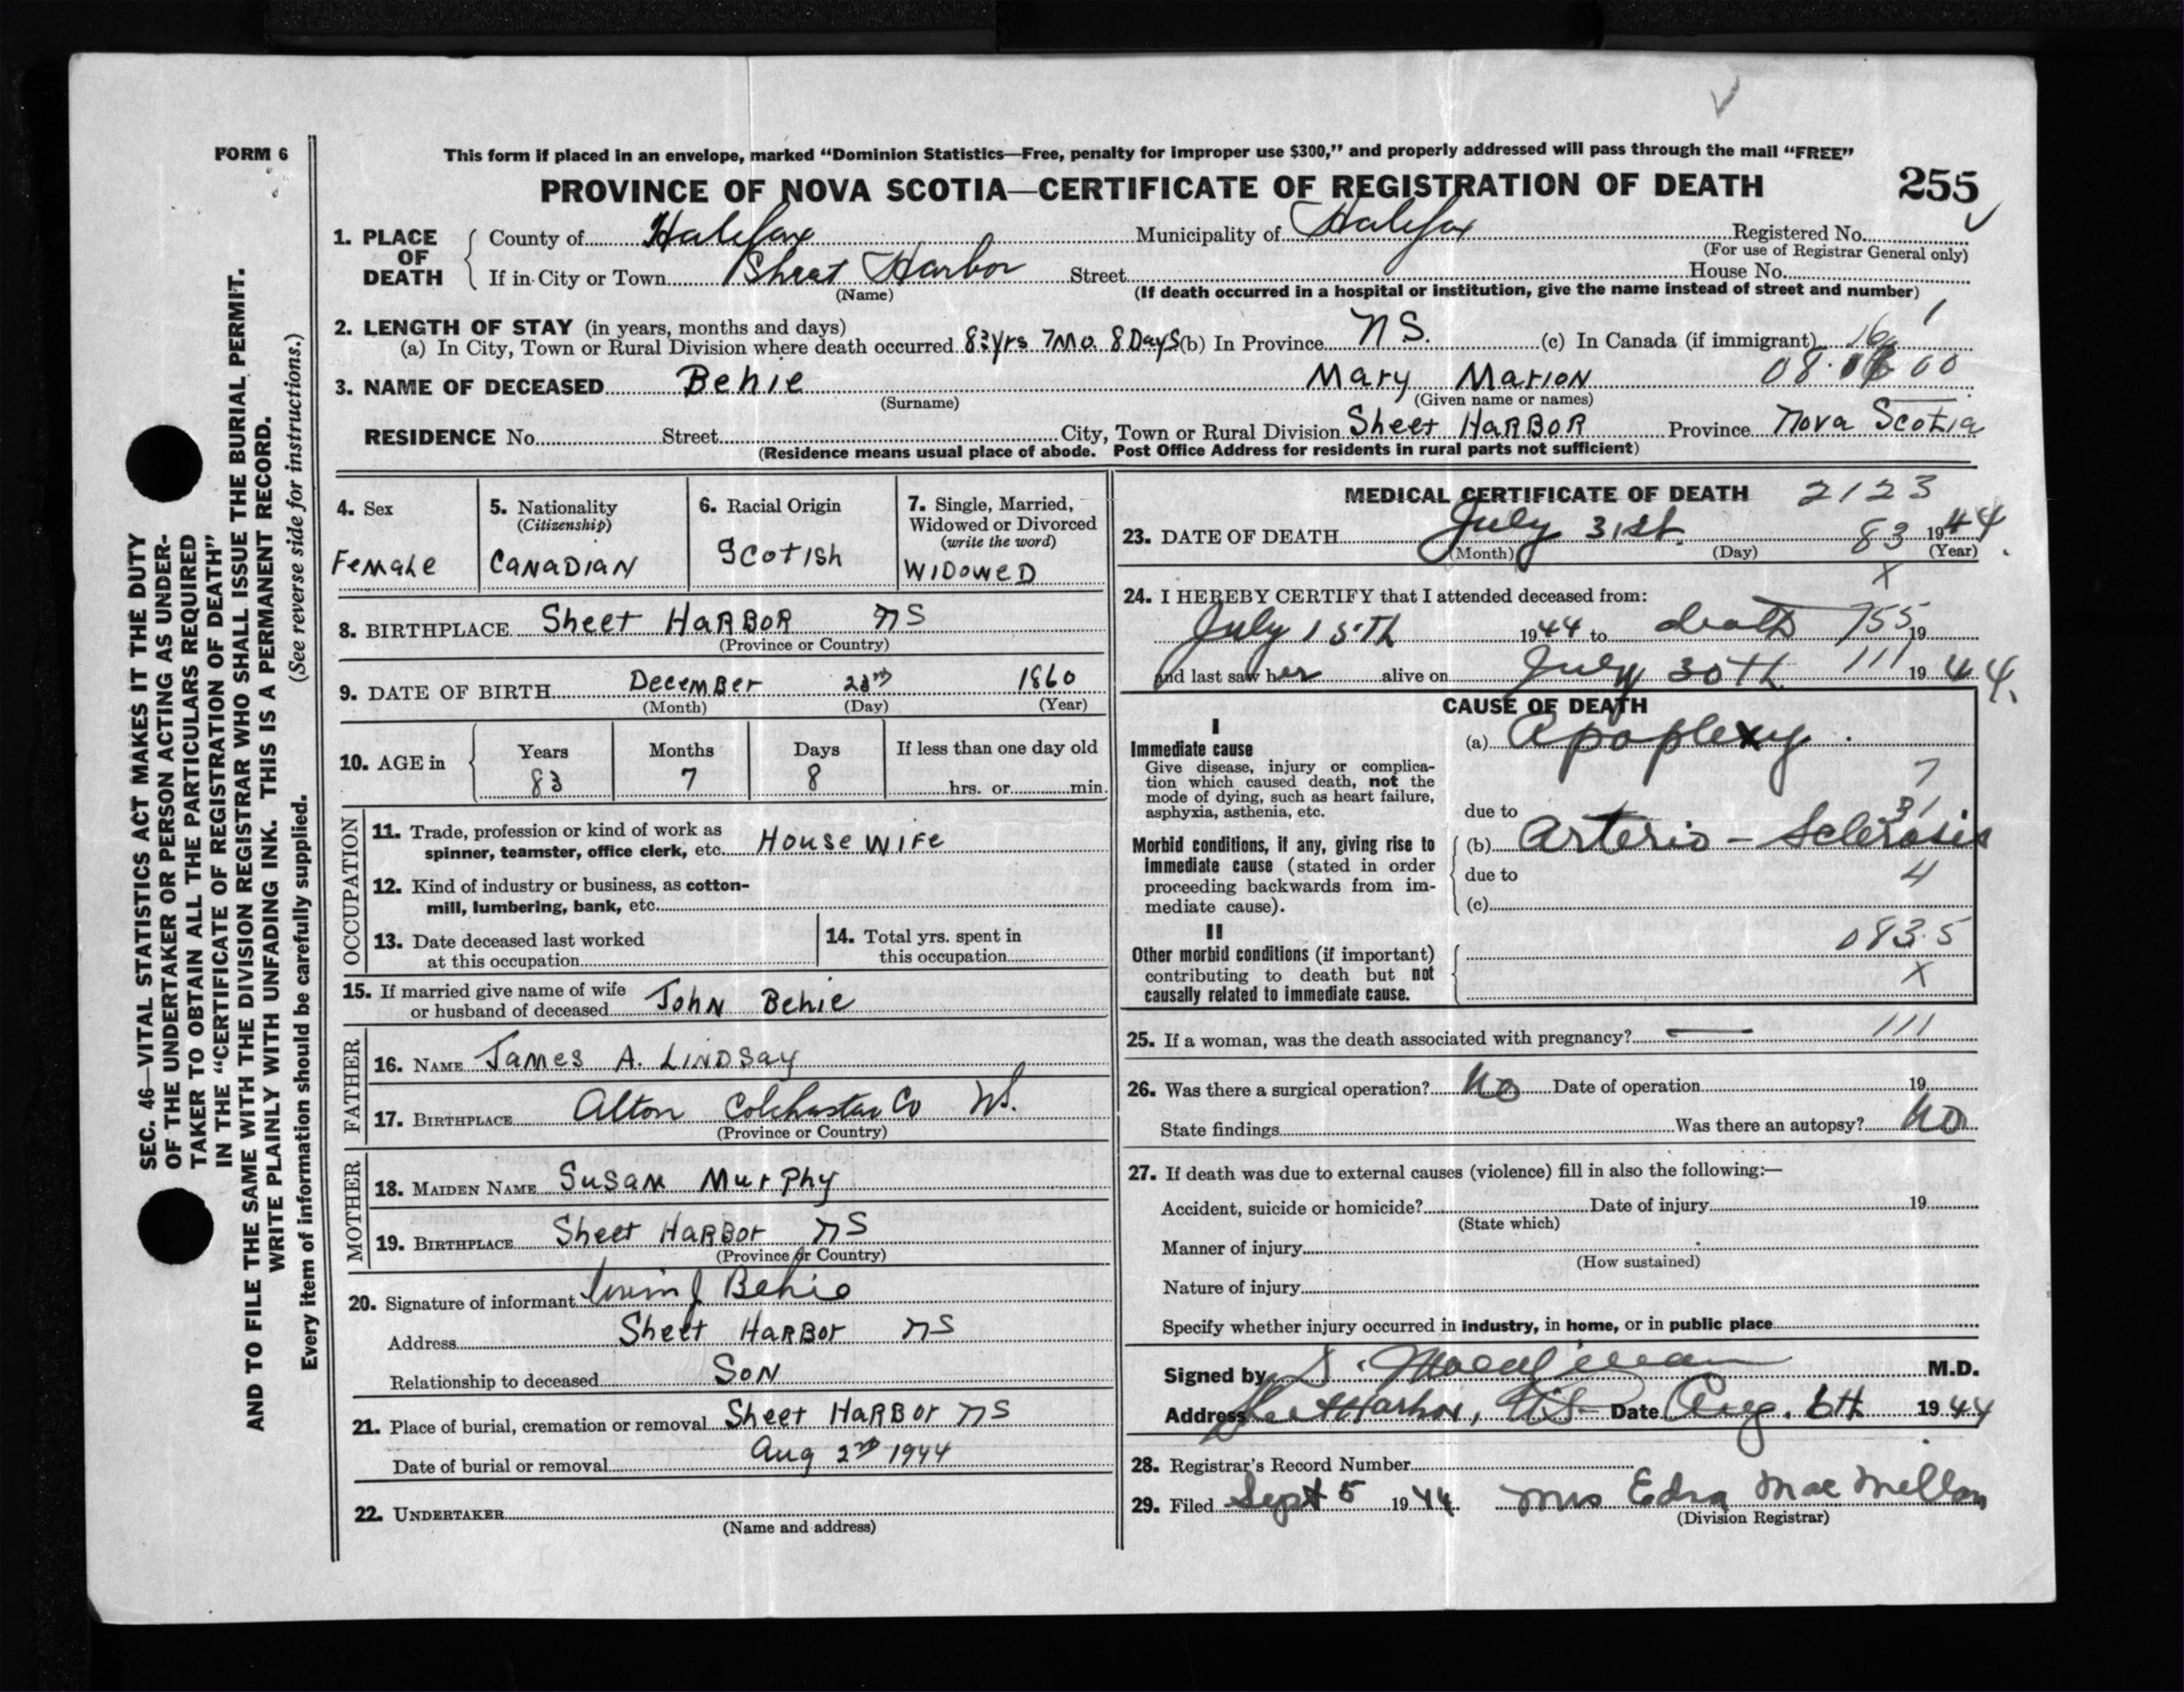 FORM 6
This form if placed in an envelope, marked “Dominion Statistics—Free, penalty for improper use $300,” and properly addressed will pass through the mail “FREE”
PROVINCE OF NOVA SCOTIA—CERTIFICATE OF REGISTRATION OF DEATH 255
1. PLACE OF DEATH
County of Halifax Municipality of Halifax Registered No.
(For use of Registrar General only)
If in City or Town Sheet Harbor Street House No.
(Name) (If death occurred in a hospital or institution, give the name instead of street and number)
2. LENGTH OF STAY (in years, months and days)
(a) In City, Town or Rural Division where death occurred 83 yrs 7 Mo. 8 Days (b) In Province NS. (c) In Canada (if immigrant)
3. NAME OF DECEASED Behie Mary Marion
(Surname) (Given name or names)
RESIDENCE No. Street City, Town or Rural Division Sheet HARBOR Province Nova Scotia
(Residence means usual place of abode. Post Office Address for residents in rural parts not sufficient)
4. Sex
Female
5. Nationality
(Citizenship)
CANADIAN
6. Racial Origin
Scotish
7. Single, Married,
Widowed or Divorced
(write the word)
WIDOWED
8. BIRTHPLACE Sheet HARBOR NS
(Province or Country)
9. DATE OF BIRTH December 1860
(Month) (Day) (Year)
10. AGE in
Years Months Days If less than one day old
83 7 8 hrs. or min.
OCCUPATION
11. Trade, profession or kind of work as
spinner, teamster, office clerk, etc. House Wife
12. Kind of industry or business, as cotton-
mill, lumbering, bank, etc.
13. Date deceased last worked
at this occupation
14. Total yrs. spent in
this occupation
15. If married give name of wife
or husband of deceased John Behie
FATHER
16. NAME James A. Lindsay
17. BIRTHPLACE Alton Colchester Co NS.
(Province or Country)
MOTHER
18. MAIDEN NAME Susan Murphy
19. BIRTHPLACE Sheet HARBor NS
(Province or Country)
20. Signature of informant Behie
Address Sheet HARBor NS
Relationship to deceased SON
21. Place of burial, cremation or removal Sheet HARBor NS
Date of burial or removal Aug 2nd 1944
22. UNDERTAKER
(Name and address)
MEDICAL CERTIFICATE OF DEATH 2123
23. DATE OF DEATH July 31st. 83 1944
(Month) (Day) (Year)
X
24. I HEREBY CERTIFY that I attended deceased from:
July 15th 1944 to death 755 19
and last saw her alive on July 30th 111 1944.
CAUSE OF DEATH
I
Immediate cause
Give disease, injury or complica-
tion which caused death, not the
mode of dying, such as heart failure,
asphyxia, asthenia, etc.
(a) Apoplexy.
7
due to 31
Morbid conditions, if any, giving rise to
immediate cause (stated in order
proceeding backwards from im-
mediate cause).
(b) Arterio-Sclerosis
due to 4
(c)
II
Other morbid conditions (if important)
contributing to death but not
causally related to immediate cause.
083.5
X
25. If a woman, was the death associated with pregnancy? — 111
26. Was there a surgical operation? No Date of operation 19
State findings Was there an autopsy? No
27. If death was due to external causes (violence) fill in also the following:—
Accident, suicide or homicide? Date of injury 19
(State which)
Manner of injury
(How sustained)
Nature of injury
Specify whether injury occurred in industry, in home, or in public place
Signed by M.D.
Address Sheet Harbor, N.S. Date Aug. 6th 1944
28. Registrar's Record Number
29. Filed Sept 5 1944. Mrs Edna MacMillan
(Division Registrar)
SEC. 46—VITAL STATISTICS ACT MAKES IT THE DUTY
OF THE UNDERTAKER OR PERSON ACTING AS UNDER-
TAKER TO OBTAIN ALL THE PARTICULARS REQUIRED
IN THE “CERTIFICATE OF REGISTRATION OF DEATH”
AND TO FILE THE SAME WITH THE DIVISION REGISTRAR WHO SHALL ISSUE THE BURIAL PERMIT.
WRITE PLAINLY WITH UNFADING INK. THIS IS A PERMANENT RECORD.
Every item of information should be carefully supplied. (See reverse side for instructions.)